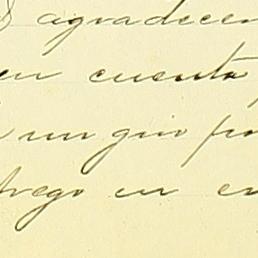 agradecer
en cuenta
un giro po
trego en en